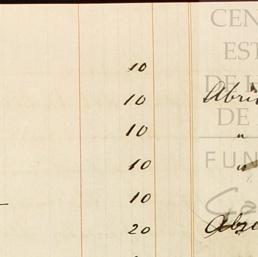 10
10 Abri
10 "
10 "
10
20 Abri
CEN
EST
DE
DE
FUN